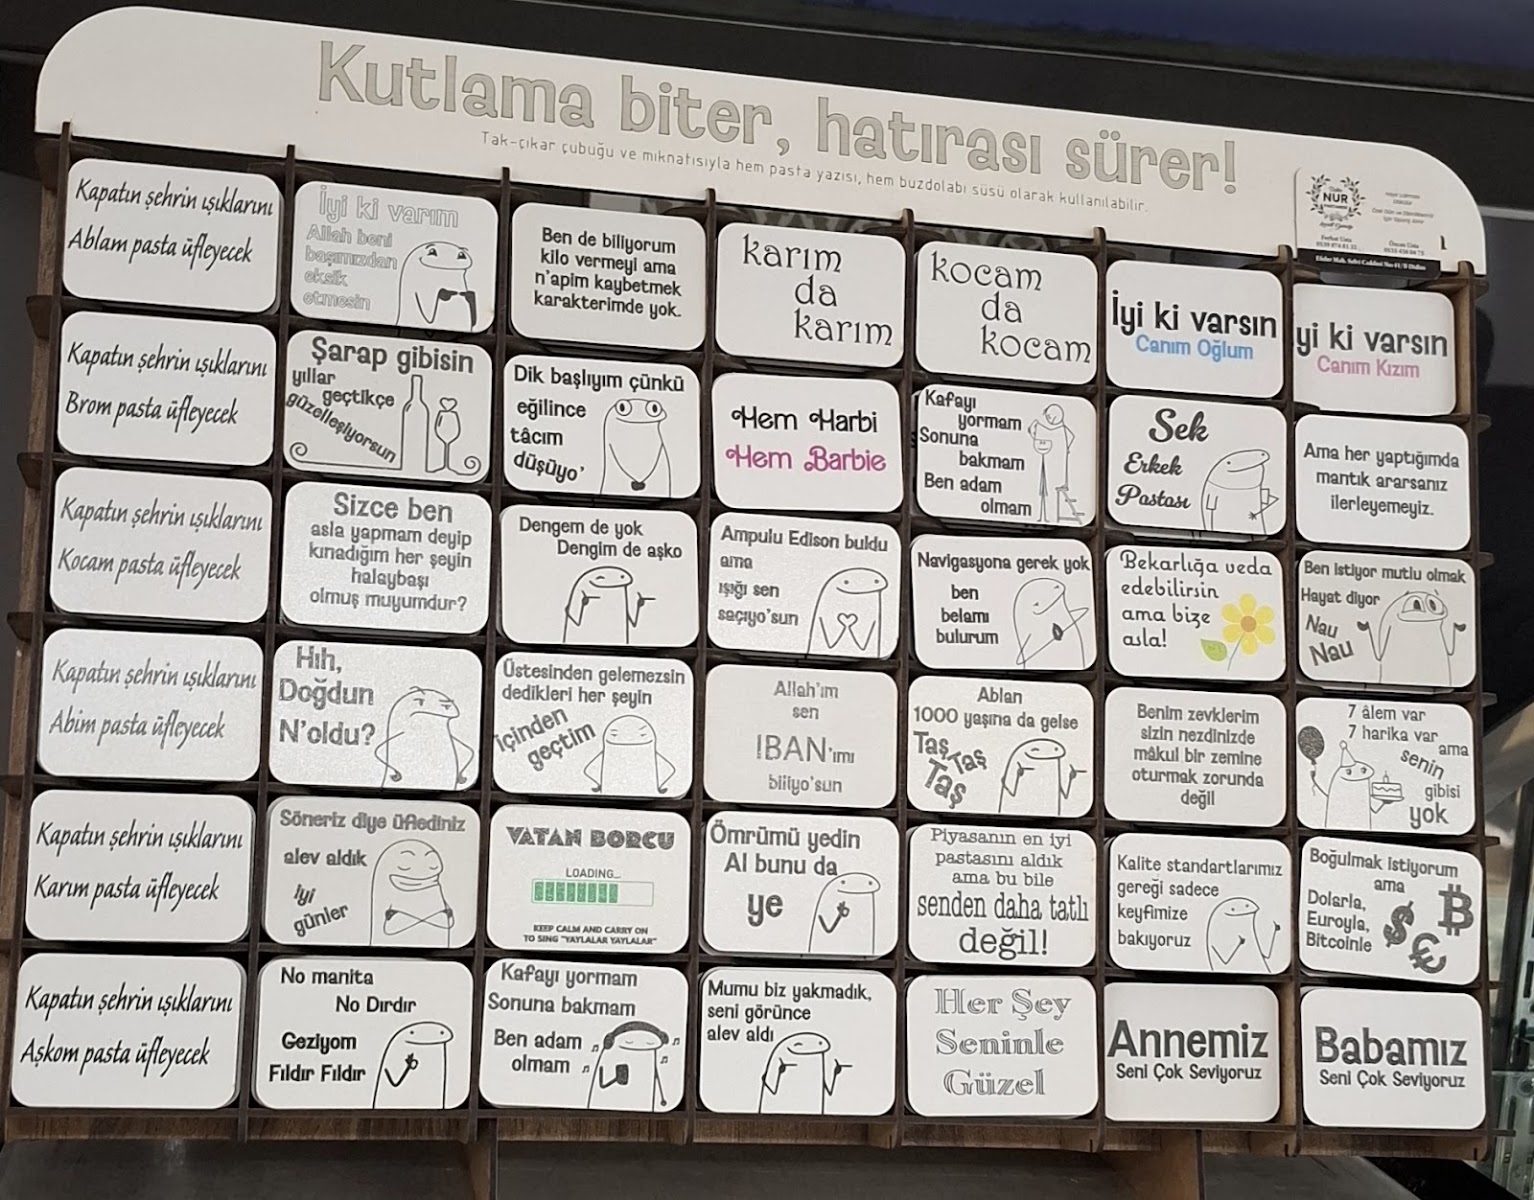 Kutlama biter, hatırası sürer!
Tak-çıkar çubuğu ve mıknatısıyla hem pasta yazısı, hem buzdolabı süsü olarak kullanılabilir.
NUR
Ferhat Usta
Özcan Usta
Kapatın şehrin ışıklarını
Ablam pasta üfleyecek
İyi ki varım
Allah beni
başımızdan
eksik
etmesin
Ben de biliyorum
kilo vermeyi ama
n'apim kaybetmek
karakterimde yok.
karım
da
karım
kocam
da
kocam
İyi ki varsın
Canım Oğlum
yi ki varsın
Canım Kızım
Kapatın şehrin ışıklarını
Brom pasta üfleyecek
Şarap gibisin
yıllar
geçtikçe
güzelleşiyorsun
Dik başlıyım çünkü
eğilince
tâcım
düşüyo'
Hem Harbi
Hem Barbie
Kafayı
yormam
Sonuna
bakmam
Ben adam
olmam
Sek
Erkek
Pastası
Ama her yaptığımda
mantık ararsanız
ilerleyemeyiz.
Kapatın şehrin ışıklarını
Kocam pasta üfleyecek
Sizce ben
asla yapmam deyip
kınadığım her şeyin
halaybaşı
olmuş muyumdur?
Dengem de yok
Dengim de aşko
Ampulu Edison buldu
ama
ışığı sen
saçıyo'sun
Navigasyona gerek yok
ben
belamı
bulurum
Bekarlığa veda
edebilirsin
ama bize
asla!
Ben istiyor mutlu olmak
Hayat diyor
Nau
Nau
Kapatın şehrin ışıklarını
Abim pasta üfleyecek
Hıh,
Doğdun
N'oldu?
Üstesinden gelemezsin
dedikleri her şeyin
içinden
geçtim
Allah'ım
sen
IBAN'ımı
biliyo'sun
Ablan
1000 yaşına da gelse
Taş
Taş
Taş
Benim zevklerim
sizin nezdinizde
mâkul bir zemine
oturmak zorunda
değil
7 âlem var
7 harika var
ama
senin
gibisi
yok
Kapatın şehrin ışıklarını
Karım pasta üfleyecek
Söneriz diye üflediniz
alev aldık
iyi
günler
VATAN BORCU
LOADING...
KEEP CALM AND CARRY ON
TO SING "YAYLALAR YAYLALAR"
Ömrümü yedin
Al bunu da
ye
Piyasanın en iyi
pastasını aldık
ama bu bile
senden daha tatlı
değil!
Kalite standartlarımız
gereği sadece
keyfimize
bakıyoruz
Boğulmak istiyorum
ama
Dolarla,
Euroyla,
Bitcoinle
Kapatın şehrin ışıklarını
Aşkom pasta üfleyecek
No manita
No Dırdır
Geziyom
Fıldır Fıldır
Kafayı yormam
Sonuna bakmam
Ben adam
olmam
Mumu biz yakmadık,
seni görünce
alev aldı
Her Şey
Seninle
Güzel
Annemiz
Seni Çok Seviyoruz
Babamız
Seni Çok Seviyoruz